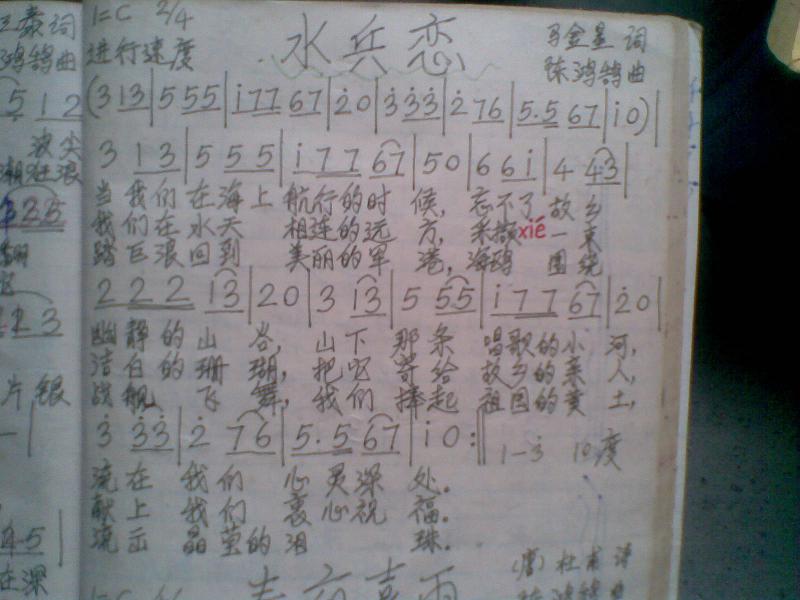 1=C 2/4
水兵恋
马金星 词
进行速度
陈鸿鹄 曲
(3 13|5 55|i77 67|2̇0|3̇ 3̇3̇|2̇ 76|5.5 67|i0)|
3 13|5 5 5|i77 67|50|6 6i|4 43|
当我们在海上航行的时候,忘不了故乡
我们在水天相连的远方,采撷xié一束
踏巨浪回到美丽的军港,海鸥围绕
222 13|20|3 13|5 55|i77 67|2̇0|
幽静的山谷,山下那条唱歌的小河,
洁白的珊瑚,把它寄给故乡的亲人,
战舰飞舞,我们捧起祖国的黄土,
3̇ 3̇3̇|2̇ 76|5.5 67|i0:‖ 1-3̇ 10度
流在我们心灵深处.
献上我们衷心祝福.
流出晶莹的泪珠.
(唐)杜甫 诗
1=C
春夜喜雨
词
鸿鹄曲
5 12
波尖
片银
在深